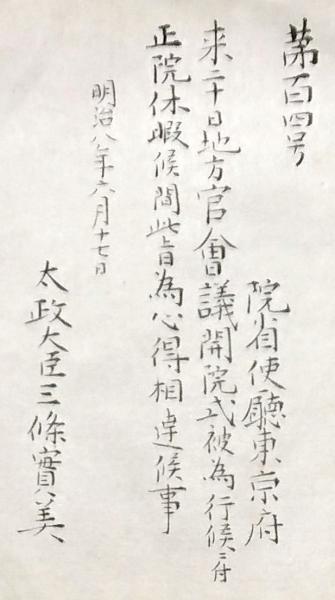 第百四号
院省使廳東京府
来二十日地方官會議開院式被為行候ニ付
正院休暇候間此旨為心得相達候事
明治八年六月十七日
太政大臣三條實美